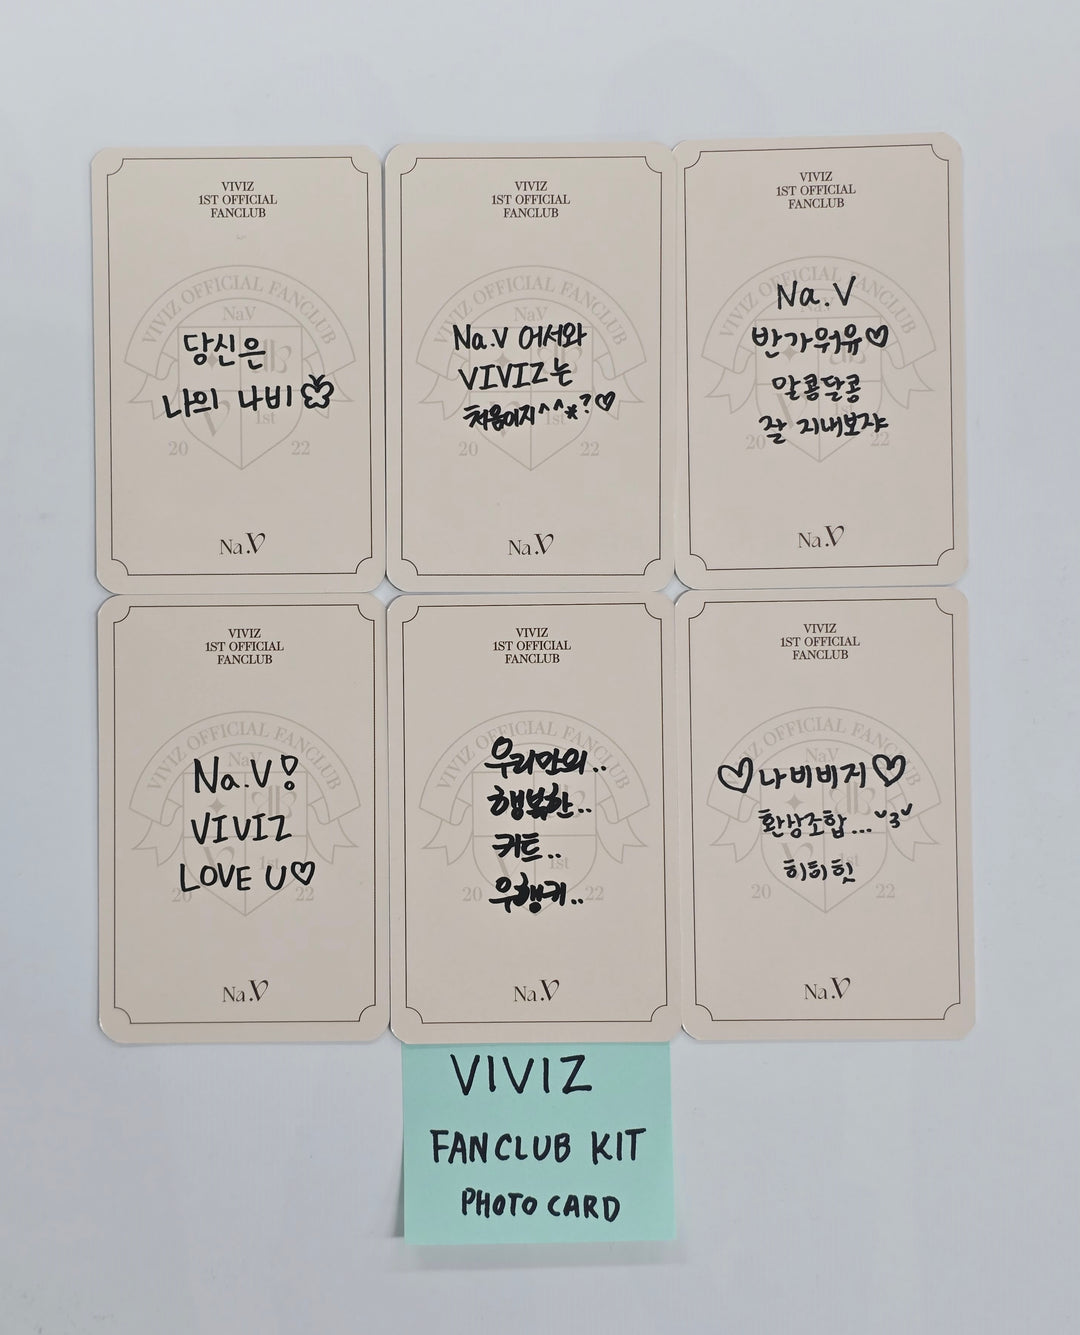 VIVIZ
1ST OFFICIAL
FANCLUB
VIVIZ OFFICIAL FANCLUB
NaV
당신은
나의 나비
1st
20 22
Na.V
VIVIZ
1ST OFFICIAL
FANCLUB
VIVIZ OFFICIAL FANCLUB
Na.V 어서와
VIVIZ는
처음이지^^*?♡
1st
20 22
Na.V
VIVIZ
1ST OFFICIAL
FANCLUB
VIVIZ OFFICIAL FANCLUB
Na.V
반가워유♡
알콩달콩
잘 지내보쟈
20 22
Na.V
VIVIZ
1ST OFFICIAL
FANCLUB
VIVIZ OFFICIAL FANCLUB
NaV
Na.V!
VIVIZ
LOVE U♡
1st
20 22
Na.V
VIVIZ
1ST OFFICIAL
FANCLUB
VIVIZ OFFICIAL FANCLUB
우리만의..
행복한..
키트..
우행키..
1st
20 22
Na.V
VIVIZ
1ST OFFICIAL
FANCLUB
VIVIZ OFFICIAL FANCLUB
NaV
♡나비비지♡
환상조합...˘3˘
히히힛
1st
20 22
Na.V
VIVIZ
FANCLUB KIT
PHOTO CARD